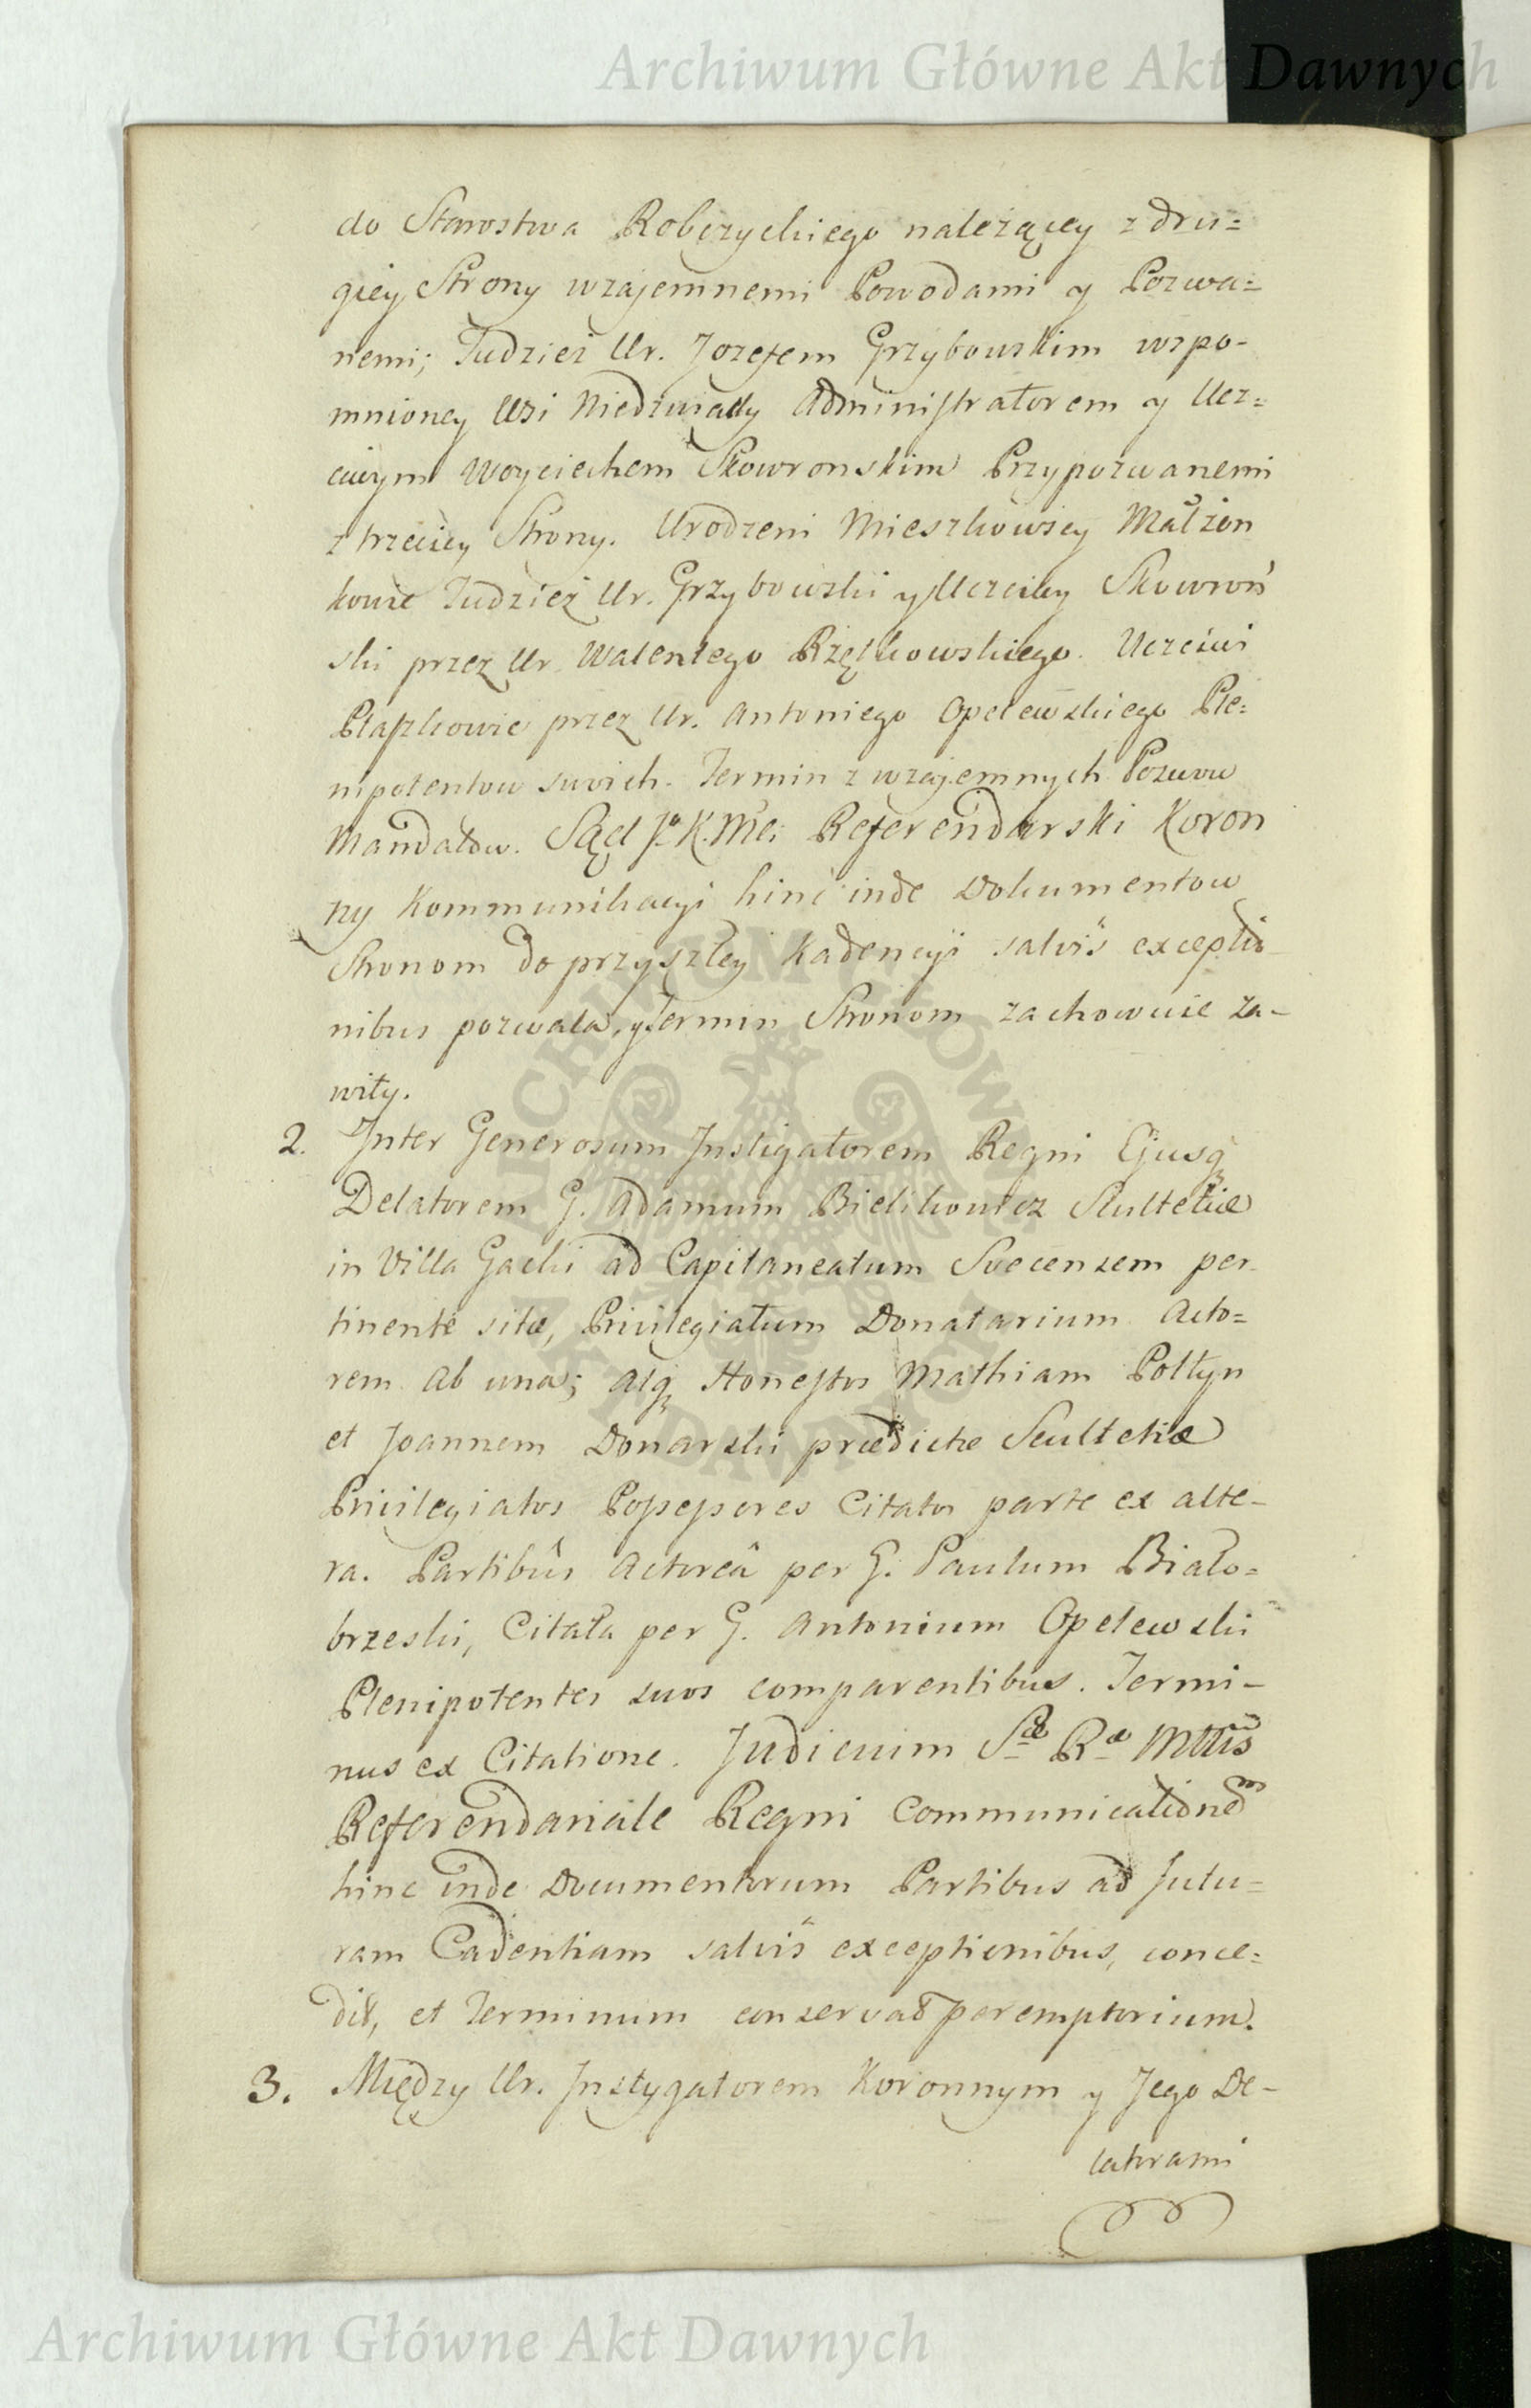 Archiwum Główne Akt Dawnych
do Starostwa Robczyckiego należącey z dru=
giey Strony wzajemnemi Powodami y Pozwa=
nemi; Tudzież Ur. Jozefem Grzybowskim wspo-
mnioney Wsi Niedzwiady Administratorem y Ucz=
ciwym Woyciechem Skowronskim Przypozwanemi
z trzeciey Strony. Urodzeni Mieszkowscy Małżon
kowie Tudzież Ur. Grzybowski y Uczciwy Skowroń
ski przez Ur. Walentego Rzętkowskiego. Uczciwi
Ptaszkowie przez Ur. Antoniego Opelewskiego Ple=
nipotentow swoich. Termin z wzajemnych Pozwow
Mandatow. Sąd J. K. Mci Referendarski Koron
ny Kommunikacyi hinc inde Dokumentow
Stronom do przyszłey Kadencyi salvis exceptio-
nibus pozwala, y Termin Stronom zachowuie za-
wity.
2. Inter Generosum Instigatorem Regni Ejusq
Delatorem G. Adamum Bielikowicz Scultetiæ
in Villa Gacki ad Capitaneatum Svecensem per-
tinente sitæ, Privilegiatum Donatarium Acto=
rem ab una; atq Honestos Mathiam Połtyn
et Joannem Donarski prædictæ Scultetiæ
Privilegiatos Possessores Citatos parte ex alte-
ra. Partibûs Actoreâ per G. Paulum Biało=
brzeski, Citata per G. Antonium Opelewski
Plenipotentes suos comparentibus. Termi-
nus ex Citatione. Judicium Sæ Ræ Mttis
Referendariale Regni Communicationem
hinc inde Documentorum Partibus ad futu=
ram Cadentiam salvis exceptionibus, conce=
dit, et Terminum conservat peremptorium.
3. Między Ur. Instygatorem Koronnym y Jego De-
latorami
ARCHIWUM GŁÓWNE
AKT DAWNYCH
Archiwum Główne Akt Dawnych